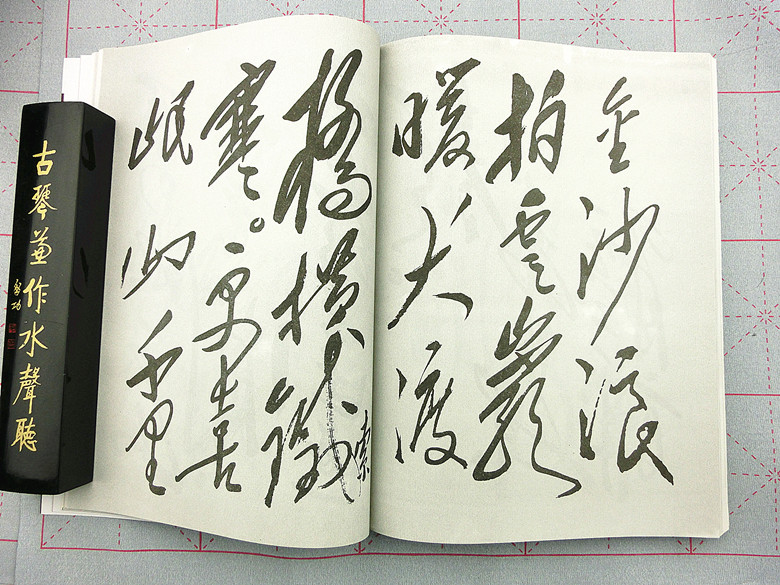 金沙浪
拍雲巖
暖大渡
橋橫鐵索
寒。更喜
岷山千里
古琴兼作水聲聽
啓功